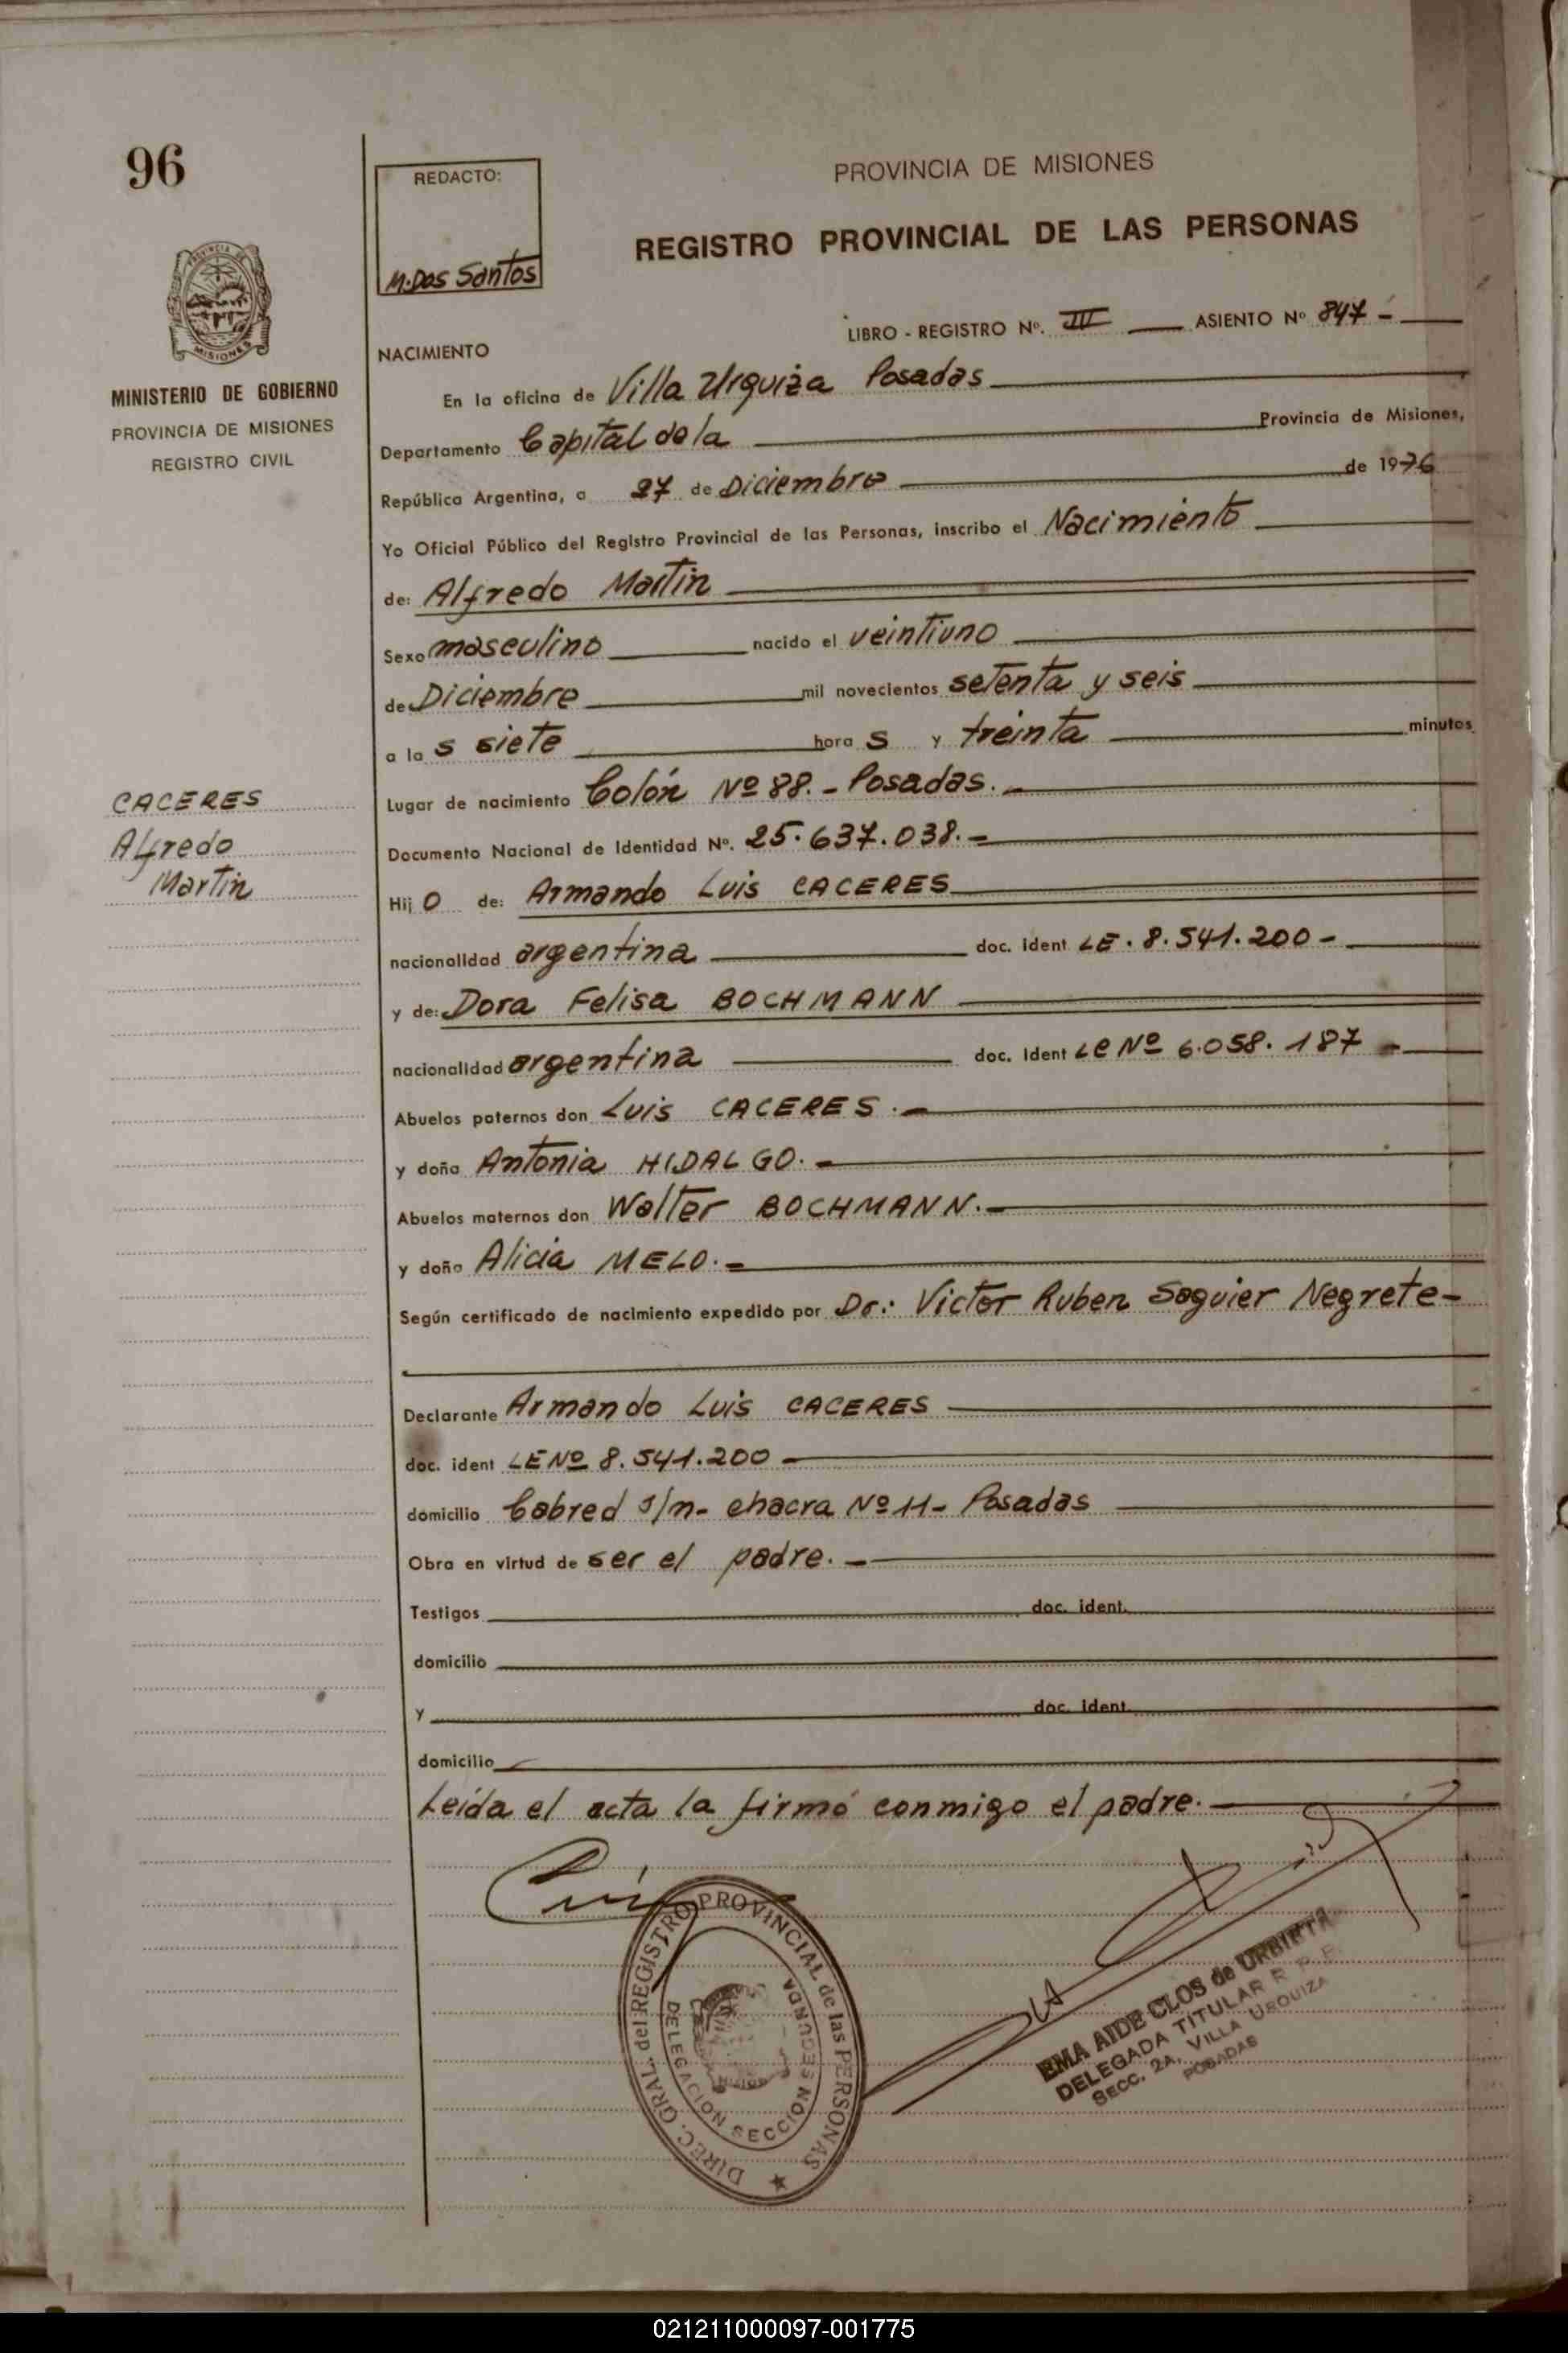 96
REDACTO:
M. Dos Santos
PROVINCIA DE MISIONES
REGISTRO PROVINCIAL DE LAS PERSONAS
PROVINCIA
MISIONES
MINISTERIO DE GOBIERNO
PROVINCIA DE MISIONES
REGISTRO CIVIL
LIBRO - REGISTRO Nº. ASIENTO Nº 847 -
NACIMIENTO
En la oficina de Villa Urquiza Posadas
Departamento Capital de la Provincia de Misiones,
República Argentina, a 27 de Diciembre de 1976
Yo Oficial Público del Registro Provincial de las Personas, inscribo el Nacimiento
de: Alfredo Martin
Sexo masculino nacido el veintiuno
de Diciembre mil novecientos setenta y seis
a la s siete hora s y treinta minutos
Lugar de nacimiento Colón Nº 88. - Posadas. -
CACERES
Alfredo
Martin
Documento Nacional de Identidad Nº. 25.637.038. -
Hij o de: Armando Luis CACERES
nacionalidad argentina doc. ident LE. 8.541.200 -
y de: Dora Felisa BOCHMANN
nacionalidad argentina doc. ident LE Nº 6.058.187 -
Abuelos paternos don Luis CACERES. -
y doña Antonia HIDALGO. -
Abuelos maternos don Walter BOCHMANN. -
y doña Alicia MELO. -
Según certificado de nacimiento expedido por Dr.: Victor Ruben Soguier Negrete -
Declarante Armando Luis CACERES
doc. ident LE Nº 8.541.200 -
domicilio Cabred s/n - chacra Nº 11 - Posadas
Obra en virtud de ser el padre. -
Testigos doc. ident.
domicilio
y doc. ident.
domicilio
Leída el acta la firmó conmigo el padre. -
DIREC. GRAL. del REGISTRO PROVINCIAL de las PERSONAS
DELEGACION SECCION SEGUNDA
EMA AIDE CLOS de URBIETA
DELEGADA TITULAR R. P. P.
SECC. 2A. VILLA URQUIZA
POSADAS
021211000097-001775